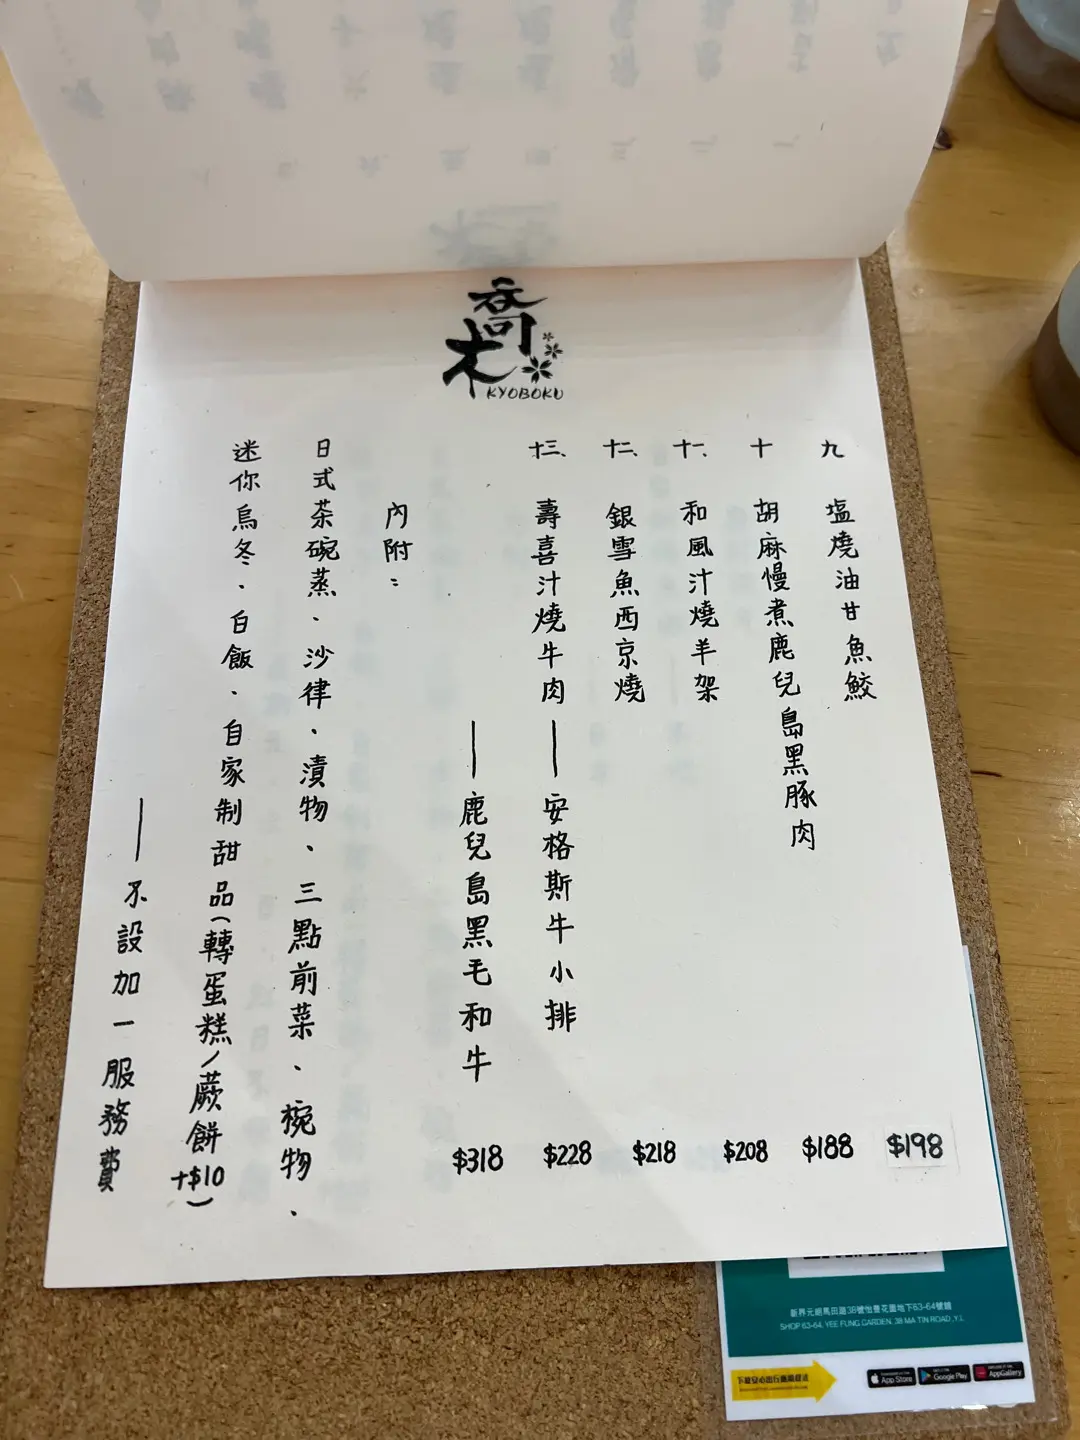 喬木
KYOBOKU
九 塩燒油甘魚鮫 $198
十 胡麻慢煮鹿兒島黑豚肉 $188
十一、 和風汁燒羊架 $208
十二、 銀雪魚西京燒 $218
十三、 壽喜汁燒牛肉——安格斯牛小排 $228
——鹿兒島黑毛和牛 $318
內附：
日式茶碗蒸、沙律、漬物、三點前菜、椀物、
迷你烏冬、白飯、自家制甜品(轉蛋糕/蕨餅+$10)
——不設加一服務費
新界元朗馬田路38號怡豐花園地下63-64號鋪
SHOP 63-64, YEE FUNG GARDEN, 38 MA TIN ROAD ,Y.L
App Store
Google Play
AppGallery